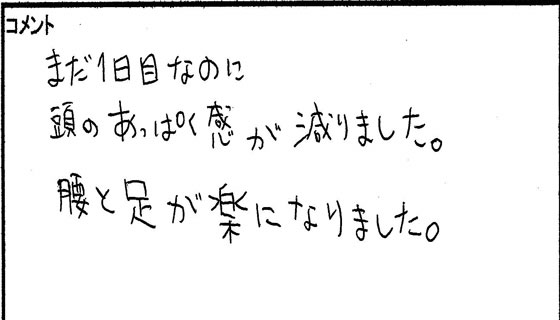 コメント
まだ1日目なのに
頭のあっぱく感が減りました。
腰と足が楽になりました。